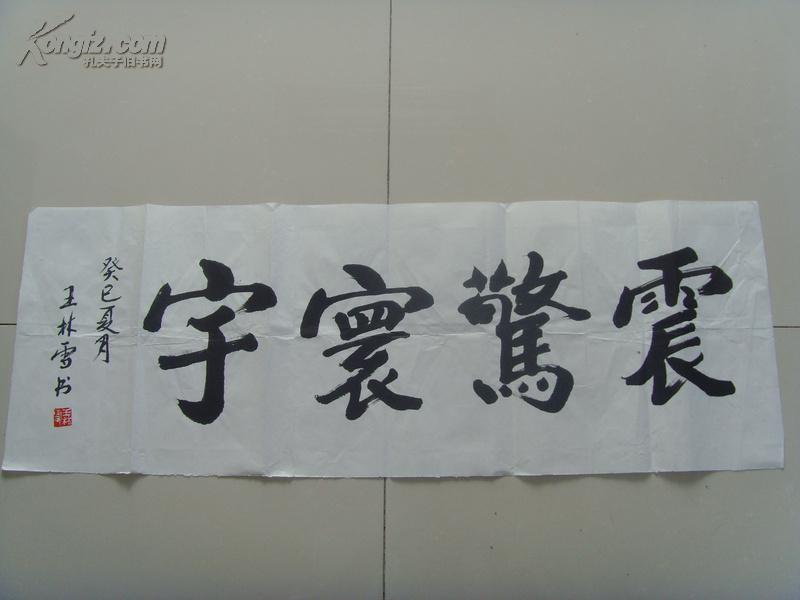 Kongfz.com
孔夫子旧书网
震驚寰宇
癸巳夏月
王林雪书